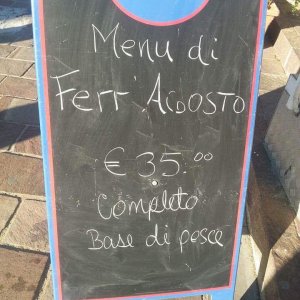 Menu' di
Ferr'Agosto
€ 35.00
Completo
Base di pesce